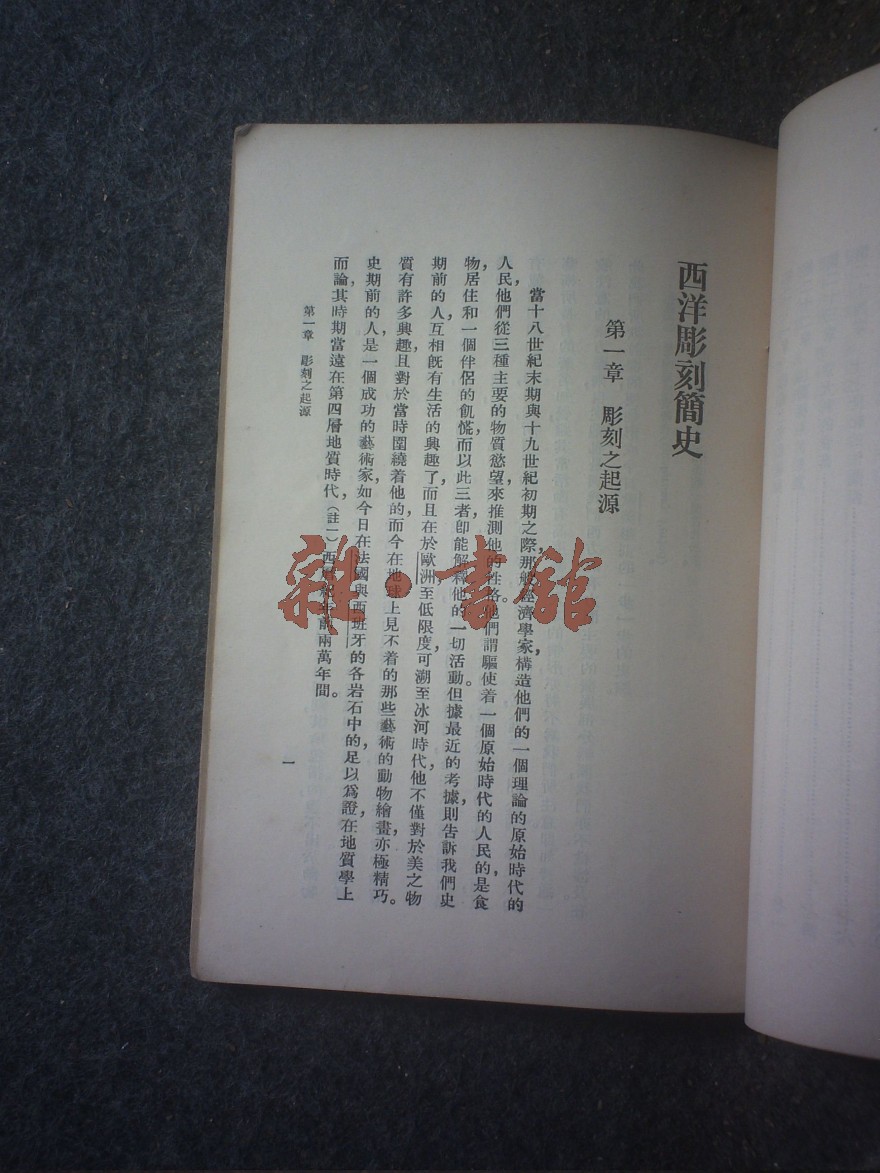 西洋彫刻簡史
第一章　彫刻之起源
當十八世紀末期與十九世紀初期之際，那般經濟學家構造他們的一個理論的原始時代的
人民，他們從三種主要的物質慾望來推測他的性格。他們謂驅使着一個原始時代的人民的是食
物，居住和一個伴侶的飢慌，而以此三者卽能解釋他的一切活動。但據最近的考據，則告訴我們史
期前的人，互相旣有生活的興趣了，而且在於歐洲至低限度可溯至冰河時代，他不僅對於美之物
質有許多興趣，且對於當時圍繞着他的，而今在地球上見不着的那些藝術的動物繪畫，亦極精巧。
史期前的人，是一個成功的藝術家，如今日在法國與西班牙的各岩石中的，足以爲證，在地質學上
而論，其時期當遠在第四層地質時代，（註一）西前兩萬年間。
第一章　彫刻之起源
一
雜·書館